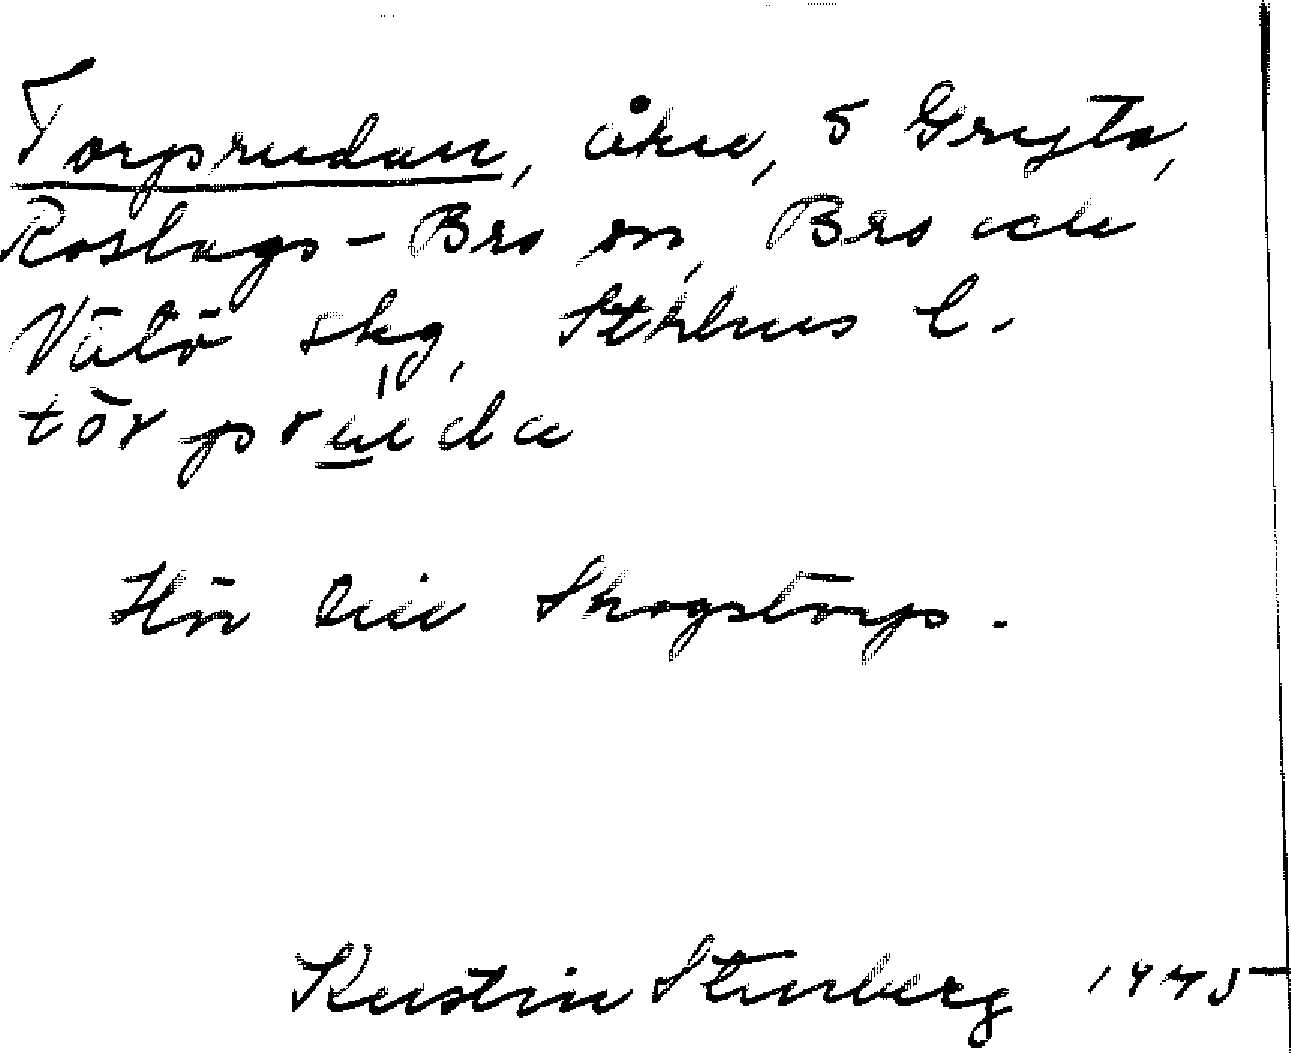 Torprudan, åker, 5 Gryta,
Roslags-Bro sn, Bro och
Vätö skg, Sthlms l.
tōrprùda
Hör till Skogstorp.
Kerstin Stenberg 1945